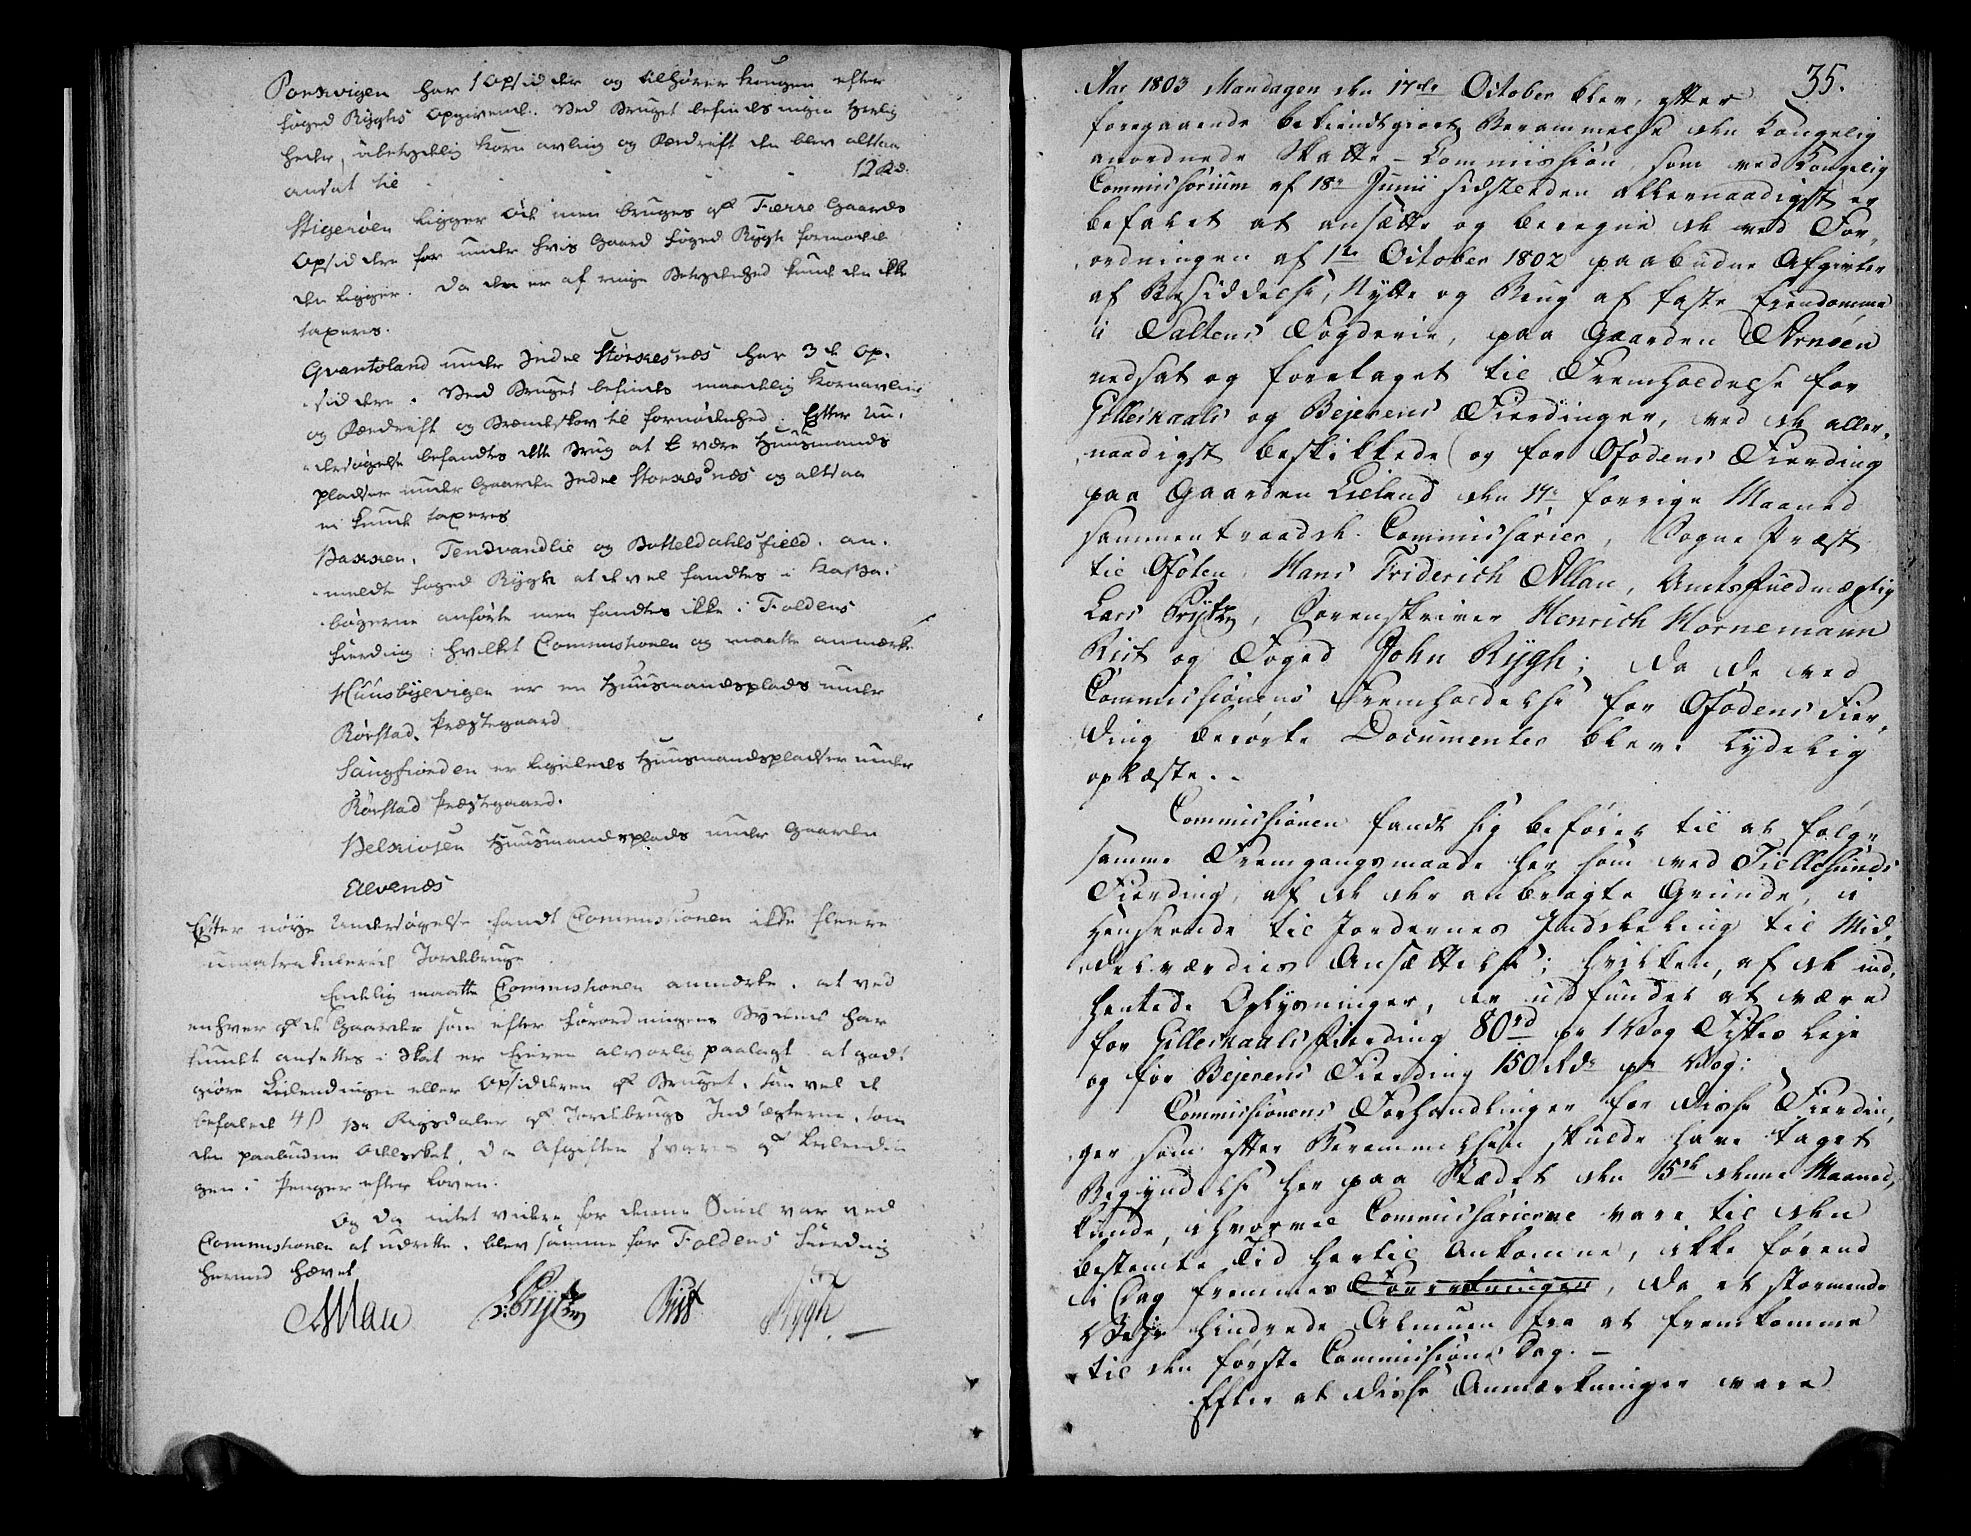 Porsvigen har 1 Opsidder og tilhører Kongen efter
Foged Ryghs Opgivende. Ved Bruget befindes ingen Herlig
heder, ubetydelig Korn avling og Fædrift den blev altsaa
ansat til 12 Rd.
Stigerøen ligger Øde men bruges af Færre Gaards
Opsiddere for under hvis Gaard Foged Rygh formodede
den ligger. Da den er af ringe Betydenhed kunde den ikke
taxeres.
Qvantoland under Indre Storskesnæs har 3de Op-
siddere. Ved Bruget befindes maadelig Kornavling
og Fædrift og Brændeskov til fornødenhed. Efter Un-
dersøgelse befandtes dette Brug at være Huusmands
pladser under Gaarden Indre Storskesnæs og altsaa
ei kunde taxeres
Bakken, Tendvandlie og Botteldahlsfield, an-
meldte Foged Rygh at de vel fandtes i
bøgerne anførte men fandtes ikke i Foldens
Fierding; hvilket Commissionen og maatte anmærke
Huusbyevigen er en Huusmandsplads under
Rørstad Præstegaard
Laugfiorden er ligeledes Huusmandspladser under
Rørstad Præstegaard.
Helskiosen Huusmandsplads under Gaarden
Elvenæs
Efter nøye Undersøgelse fandt Commissionen ikke fleere
umatrikulerede Jordebruge
Endelig maatte Commissionen anmærke, at ved
enhver af de Gaarder som efter Forordningens Bydende har
kundet ansettes i Skat er Eieren alvorlig paalagt at godt
giøre Leilendingen eller Opsidderen af Bruget, saa vel de
befalede 4 ß pr Rigsdaler af Jordebrugs Indtægterne, som
den paabudne Odelsskat, da Afgiften svares af Leilendin
gen i Penger efter Loven.
Og da intet videre for denne Sinde var ved
Commissionen at udrette, blev samme for Foldens Fierding
hermed hævet
Allan LBrystz Rist Rygh
35.
Aar 1803 Mandagen den 17de October blev, efter
foregaaende bekiendtgiort Berammelse den Kongelig
anordnede Skatte-Commission, som ved Kongelig
Commissorium af 18de Junii sidstleden allernaadigst er
befalet at ansætte og beregne de ved For-
ordningen af 1te October 1802 paabudne Afgivter
af Besiddelse, Nytte og Brug af faste Eiendomme
i Saltens Fogderie, paa Gaarden Arnøen
nedsat og foretaget til Fremholdelse for
Gilleskaals og Bejerens Fierdinger, ved de aller-
naadigst beskikkede (og for Ofodens Fierding
paa Gaarden Lieland den 14de forrige Maaned
sammentraadde Commissarier, Sogne Præst
til Ofoten, Hans Friderich Allan, Amtsfuldmægtig
Lars Brystz, Sorenskriver Henrich Hornemann
Rist og Foged John Rygh; da de ved
Commissionens Fremholdelse for Ofodens Fier-
ding berørte Documenter bleve lydelig
oplæste. -
Commissionen fandt sig beføiet til at følge
samme Fremgangsmaade her som ved Tiellesunds
Fierding, af de der anbragte Grunde, i
Henseende til Jordernes Inddeling til Mid-
delværdies Ansættelse; hvilken, af de ind-
hentede Oplysninger, er udfundet at være
for Gilleskaals Fierding 80rd pr 1 Vog Fiskes Leje
og for Bejerens Fierding 150 Rdr pr Vog;
Commissionens Forhandlinger for disse Fierdin-
ger som efter Berammelsen skulde have taget
Begyndelse her paa Stædet den 15de denne Maaned,
kunde, ihvorvel Commissarierne vare til den
bestemte Tid hertil Ankomne, ikke førend
i Dag fremmes Forretningen, da et stormende
Vejr hindrede Almuen fra at fremkomme
til den første Commissions Dag. -
Efter at disse Anmærkninger vare